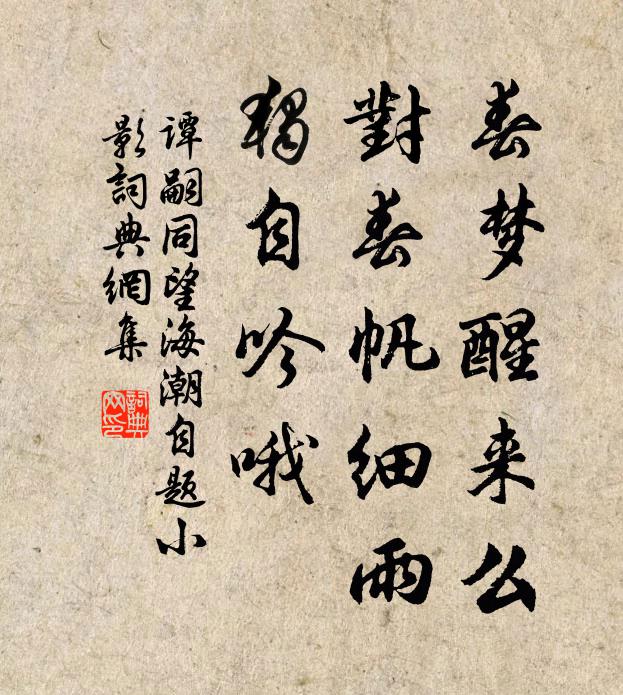 春梦醒来么
對春帆細雨
獨自吟哦
谭嗣同望海潮自题小
影詞典網集
詞典
网印